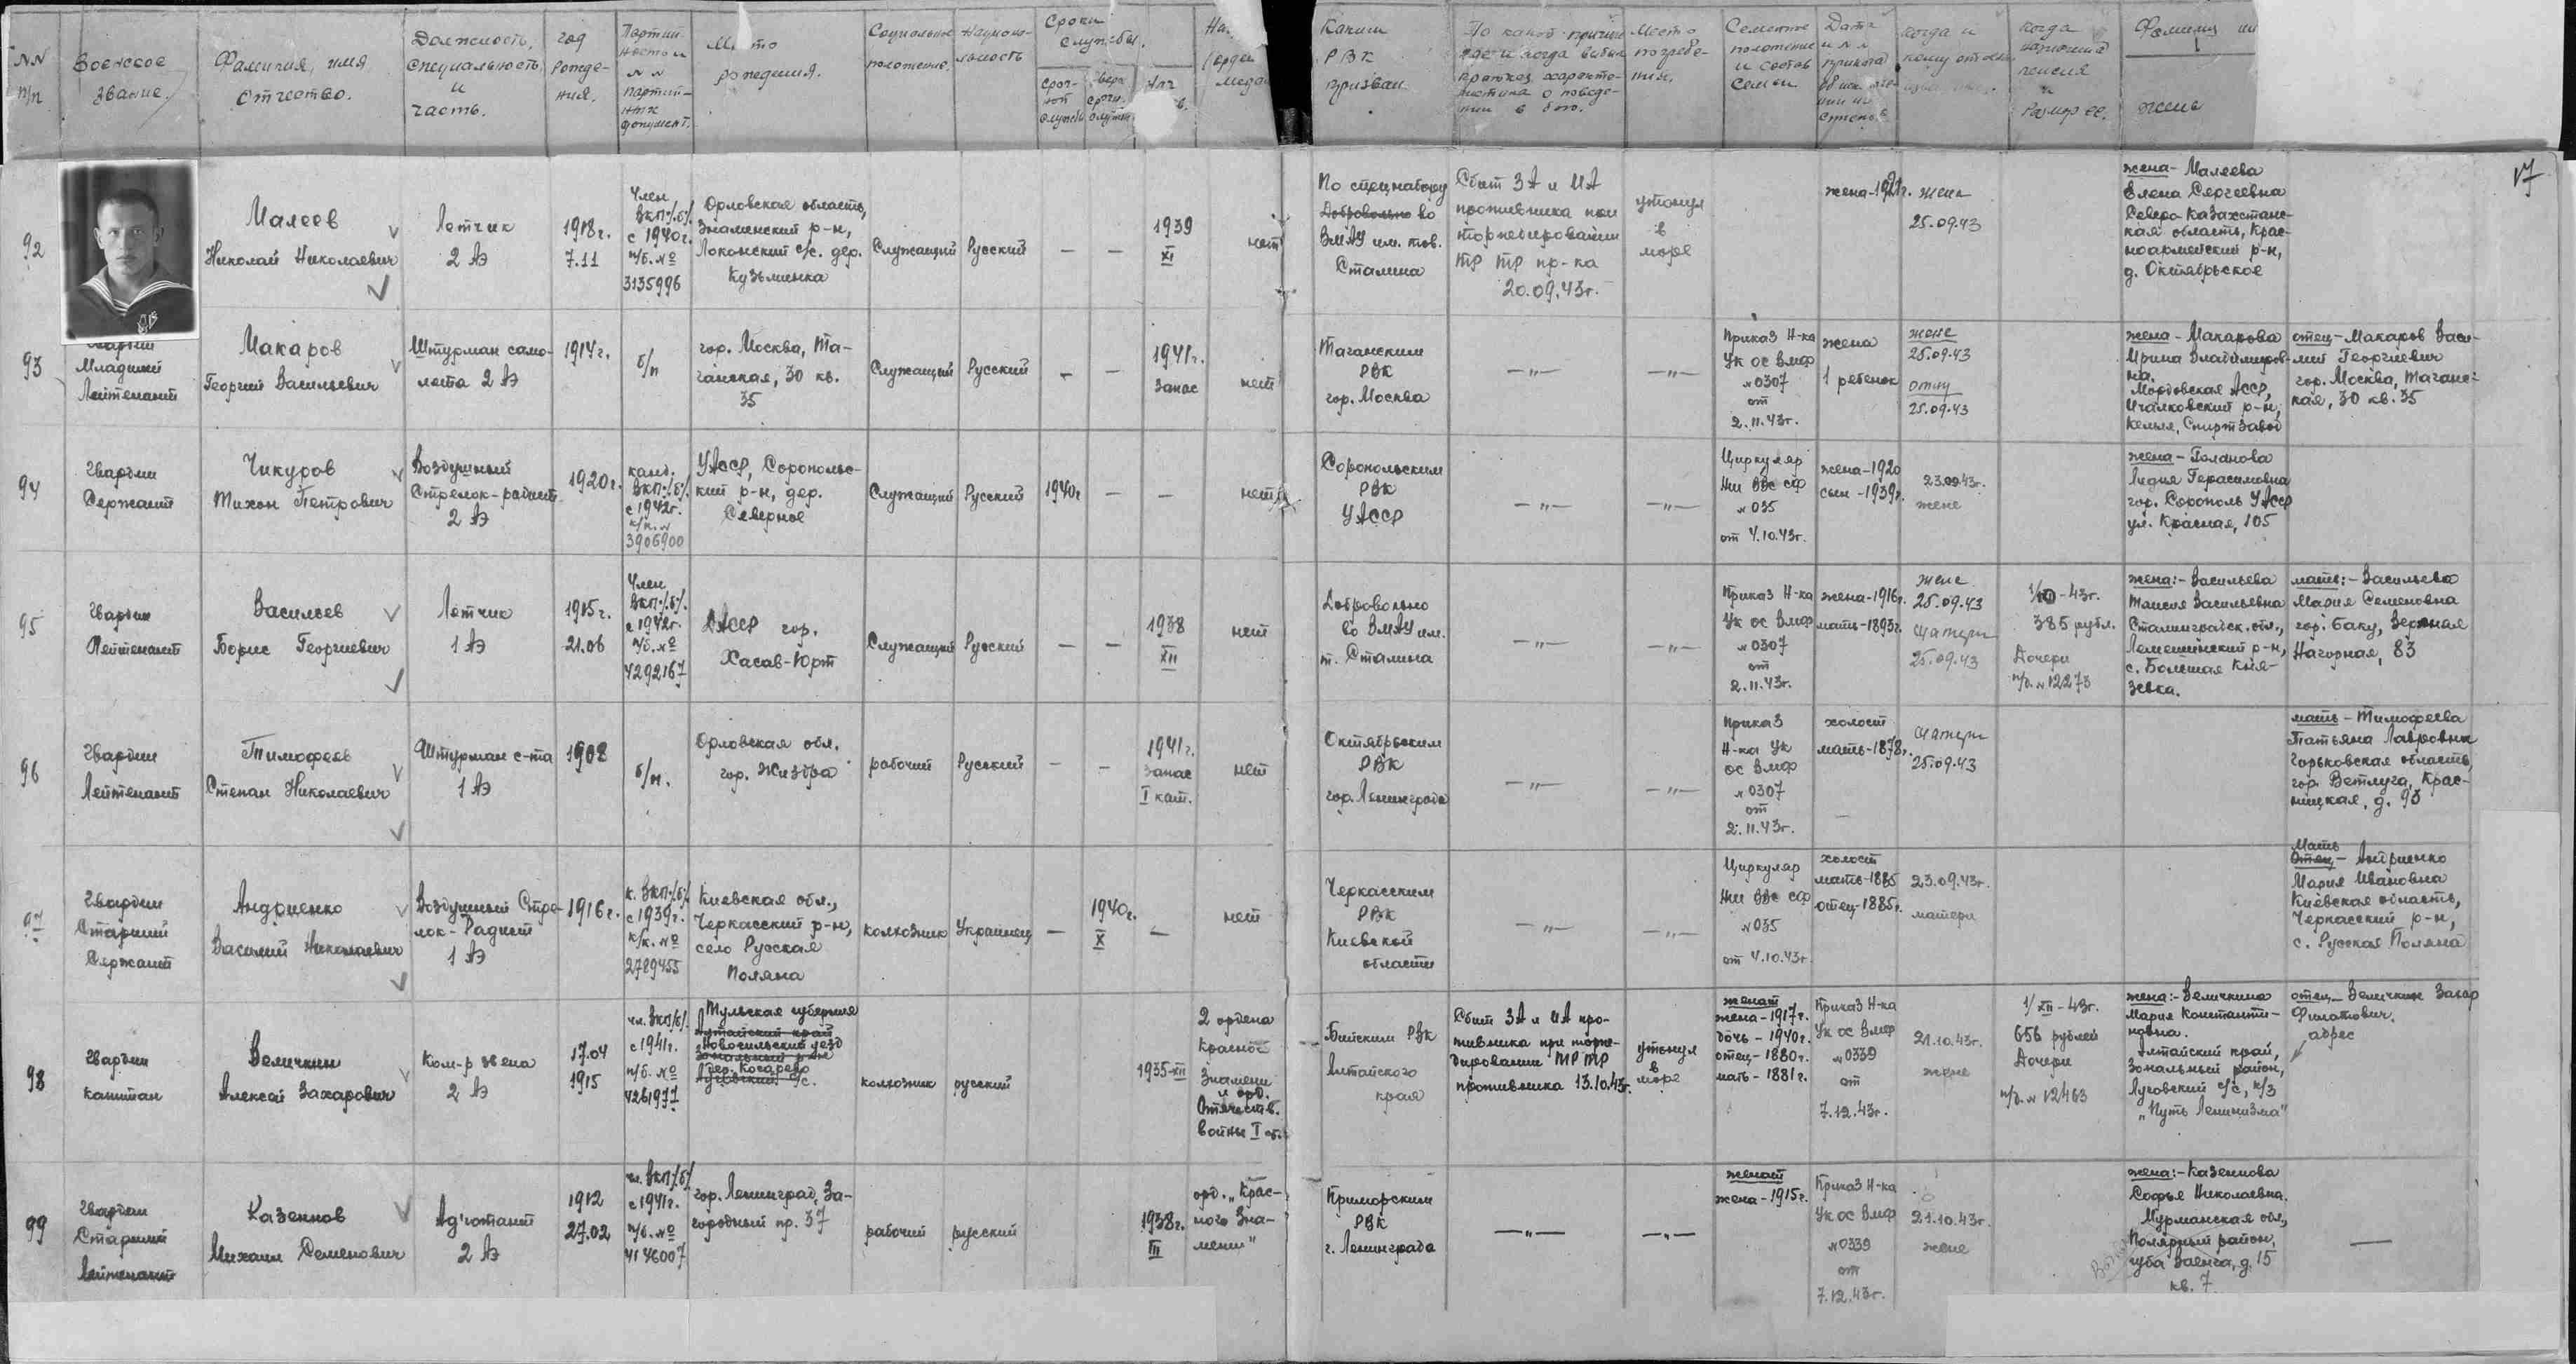 NN п/п
Военское звание.
Фамилия, имя, отчество.
Должность, специальность и часть.
год рождения.
Партийность и NN партийных документ.
Место рождения.
Социальное положение.
Национальность
Сроки службы.
срочной службы
сверх срочн. службы
Каким РВК призван.
По какой причине где и когда выбыл краткая характеристика о поведении в бою.
Место погребения.
Семейное положение и состав семьи
Дата и NN приказа
когда и кому
когда назначена пенсия и размер ее.
Фамилия
жены
17
92
Малеев
Николай Николаевич
Летчик
2 АЭ
1918г.
7.11
Член
ВКП/б/
с 1940г.
п/б. №
3135996
Орловская область,
Знаменский р-н,
Локонский с/с. дер.
Кузьминка
Служащий
Русский
—
—
1939
XI
нет
По спецнабору
Добровольно во
ВМАУ им. тов.
Сталина
Сбит ЗА и ИА
противника при
торпедировании
ТР ТР пр-ка
20.09.43г.
утонул
в
море
жена-1921г.
жене
25.09.43
жена- Малеева
Елена Сергеевна
Северо Казахстанс-
кая область, Крас-
ноармейский р-н,
д. Октябрьское
93
Гвардии
Младший
Лейтенант
Макаров
Георгий Васильевич
Штурман само-
лета 2 АЭ
1914г.
б/п
гор. Москва, Та-
ганская, 30 кв.
35
Служащий
Русский
—
—
1941г.
Запас
нет
Таганским
РВК
гор. Москва
—"—
—"—
Приказ Н-ка
Ук ос ВМФ
N 0307
от
2.11.43г.
жена
1 ребенок
жене
25.09.43
отцу
25.09.43
жена - Макарова
Ирина Владимиров-
на.
Мордовская АССР,
Ичалковский р-н,
Кемля, Спиртзавод
отец - Макаров Васи-
лий Георгиевич
гор. Москва, Таганс-
кая, 30 кв. 35
94
Гвардии
Сержант
Чикуров
Тихон Петрович
Воздушный
Стрелок-радист
2 АЭ
1920г.
канд.
ВКП/б/
с 1942г.
к/к. N
3906900
УАССР, Соропольс-
кий р-н, дер.
Северное
Служащий
Русский
1940г
—
—
нет
Соропольским
РВК
УАССР
—"—
—"—
Циркуляр
ВВС СФ
N 035
от 4.10.43г.
жена-1920
сын-1939г.
23.09.43г.
жене
жена - Голанова
Лидия Герасимовна
гор. Сорополь УАССР
ул. Красная, 105
95
Гвардии
Лейтенант
Васильев
Борис Георгиевич
Летчик
1 АЭ
1915г.
21.06
Член
ВКП/б/
с 1942г.
п/б. №
4292167
ДАССР гор.
Хасав-Юрт
Служащий
Русский
—
—
1938
XII
нет
Добровольно
во ВМАУ им.
т. Сталина
—"—
—"—
Приказ Н-ка
Ук ос ВМФ
N 0307
от
2.11.43г.
жена-1916г.
мать-1893г.
жене
25.09.43
матери
25.09.43
385 рубл.
Дочери
п/д. N 12273
жена:- Васильева
Таисия Васильевна
Сталинградск. обл.,
Лемешинский р-н,
с. Большая Кня-
зевка.
мать:- Васильева
Мария Семеновна
гор. Баку, Верхная
Нагорная, 83
96
Гвардии
Лейтенант
Тимофеев
Степан Николаевич
Штурман с-та
1 АЭ
1908
б/п.
Орловская обл.
гор. Жиздра
рабочий
Русский
—
—
1941г.
Запас
I кат.
нет
Октябрьским
РВК
гор. Ленинграда
—"—
—"—
Приказ
Н-ка Ук
ос ВМФ
N 0307
от
2.11.43г.
холост
мать-1878г.
матери
25.09.43
мать - Тимофеева
Татьяна Лавровна
Горьковская область
гор. Ветлуга, Крас-
ницкая, д. 93
97
Гвардии
Старший
Сержант
Андриенко
Василий Николаевич
Воздушный Стре-
лок-Радист
1 АЭ
1916г.
к. ВКП/б/
с 1939г.
к/к. №
2789455
Киевская обл.,
Черкасский р-н,
село Русская
Поляна
колхозник
Украинец
—
1940г.
X
—
нет
Черкасским
РВК
Киевской
области
—"—
—"—
Циркуляр
ВВС СФ
N 035
от 4.10.43г
холост
мать-1885
отец-1885г.
23.09.43г.
матери
Мать
Отец - Андриенко
Мария Ивановна
Киевская область,
Черкасский р-н,
с. Русская Поляна
98
Гвардии
капитан
Величкин
Алексей Захарович
Ком-р звена
2 АЭ
17.04
1915
чл. ВКП/б/
с 1941г.
п/б. №
4261977
Тульская губерния
Алтайский край
Новосильский уезд
Зональный р-н
дер. Косарево
Луговский с/с.
колхозник
русский
1935-XII
2 ордена
Красное
Знамени
и орд.
Отечеств.
войны I ст.
Бийским РВК
Алтайского
края
Сбит ЗА и ИА про-
тивника при торпе-
дировании ТР ТР
противника 13.10.43г.
утонул
в
море
женат
жена-1917г.
дочь-1940г.
отец-1880г.
мать-1881г.
Приказ Н-ка
Ук ос ВМФ
N 0339
от
7.12.43г.
21.10.43г.
жене
1/XII-43г.
656 рублей
Дочери
п/д. N 12463
жена:- Величкина
Мария Константи-
новна.
Алтайский край,
Зональный район,
Луговский с/с, к/з
"Путь Ленинизма"
отец - Величкин Захар
Филатович.
адрес
99
Гвардии
Старший
Лейтенант
Казеннов
Михаил Семенович
Адъютант
2 АЭ
1912
27.02
чл. ВКП/б/
с 1941г.
п/б. №
4146007
гор. Ленинград, За-
городный пр. 37
рабочий
русский
1938г.
III
орд. "Крас-
ного Зна-
мени"
Приморским
РВК
г. Ленинграда
—"—
—"—
женат
жена-1915г.
Приказ Н-ка
Ук ос ВМФ
N 0339
от
7.12.43г.
21.10.43г.
жене
жена:- Казеннова
Софья Николаевна.
Мурманская обл,
Полярный район,
губа Ваенга, д. 15
кв. 7
—